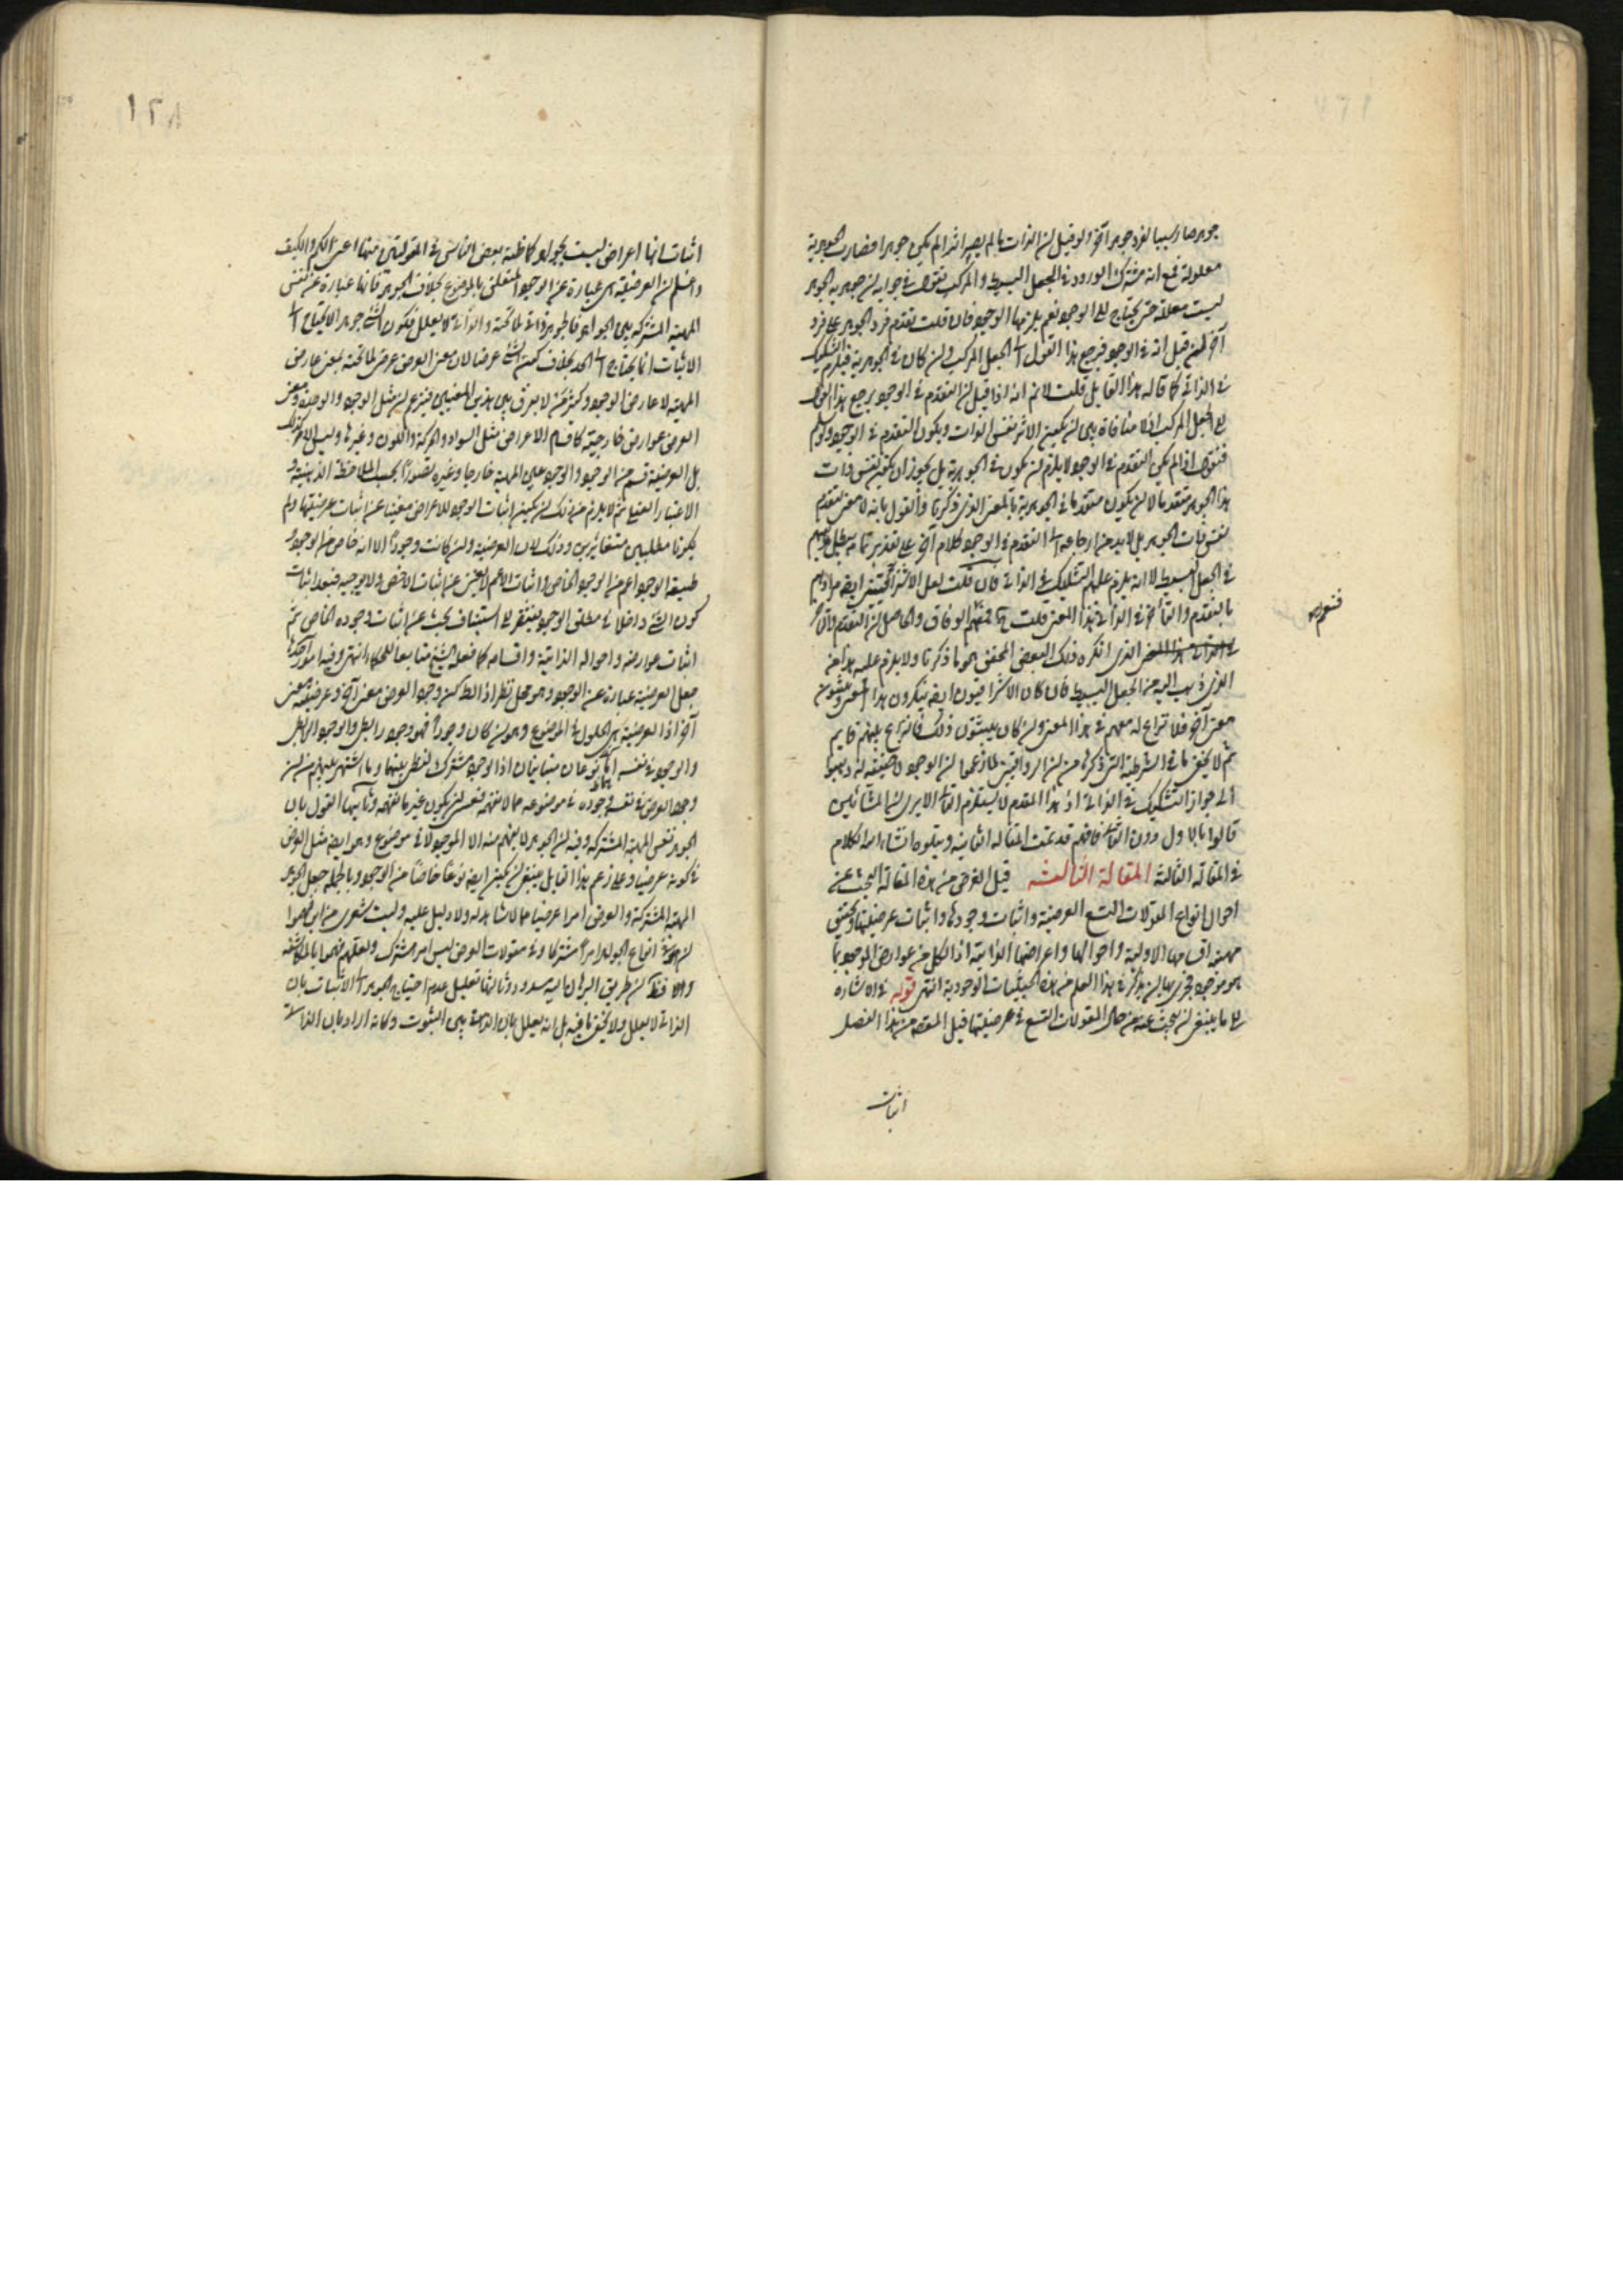 جوهر صار سببا لفرد جوهر آخر ولو قيل لن الذات ما لم يصر اثرا لم يكن جوهرا فصارت الجوهرية
معلولة فمع انه مشترك الورود في الجعل البسيط والمركب نقول في جوابه لن جوهرية الجوهر
ليست معللة حتى يحتاج الى الوجود نعم يلزمها الوجود فان قلت تقدم فرد الجوهر على فرد
آخر لمن قيل انه في الوجود فيرجع هذا القول الى الجعل المركب ولن كان في الجوهرية فيلزم التشكيك
في الذاتي كما قاله هذا القايل قلت لا نم انه اذا قيل لن التقدم في الوجود يرجع هذا القول
الى الجعل المركب اذ لا منافاة بين لن يكون الاثر نفس الذات ويكون التقدم في الوجود ولو سلم
فنقول اذا لم يكن التقدم في الوجود لا يلزم لن يكون في الجوهرية بل يجوز ان يكون نفس ذات
هذا الجوهر متقدما لا لن يكون متقدما في الجوهرية بالمعنى الذي ذكرنا والقول بانه لا معنى لتقدم
نفس ذات الجوهر بل لابد من ارجاعه الى التقدم في الوجود كلام آخر على تقدير تمامه يبطل
في الجعل البسيط لا انه يلزم عليهم التشكيك في الذاتي فان قلت لعل الاشراقيين ايضا مرادهم
بالتقدم والتأخر في الذاتي هذا المعنى قلت الوفاق والحاصل لن التقدم
الذي انكره ذلك البعض المحقق هو ما ذكرنا ولا يلزم عليه هذا من
الذي ذهب اليه من الجعل البسيط فان كان الاشراقيون ايضا ينكرون هذا المعنى ويثبتون
معنى آخر فلا نزاع له معهم في هذا المعنى ولن كان يثبتون ذلك فالنزاع بينهم قايم
ثم لا يخفى ما في الشرطية التي ذكره من لن الرواقيين لما زعموا لن الوجود لا حقيقة له ذهبوا
الى جواز التشكيك في الذاتي اذ هذا المقدم لا يستلزم التالي الا يرى لن المشائين
قالوا بالاول دون الثاني فافهم قد تمت المقالة الثانية ويتلوه انشاء الله الكلام
في المقالة الثالثة المقالة الثالثة قيل الغرض من هذه المقالة البحث عن
احوال انواع المقولات التسع العرضية واثبات وجودها واثبات عرضيتها وتحقيق
مهية اقسامها الاولية واحوالها واعراضها الذاتية اذ الكل من عوارض الموجود بما
هو موجود فحري بها لن يذكر في هذا العلم من هذه الحيثيات الوجودية انتهى قوله في الاشارة
الى ما ينبغي لن يبحث عنه من حال المقولات التسع في عرضيتها قيل المقصود من هذا الفصل
اثبات
١٢٨
اثبات انها اعراض ليست بجواهر كما ظنه بعض الناس في المقولتين منها اعني الكم والكيف
واعلم لن العرضية هي عبارة عن الوجود المتعلق بالموضوع بخلاف الجوهر فانها عبارة عن نفس
المهية المشتركة بين الجواهر فالجوهر ذاتي لما تحته والذاتي لا يعلل فكون الشيء جوهرا لا يحتاج الى
الاثبات انما يحتاج الى الحد بخلاف كون الشيء عرضا لان معنى العرض عرضي لما تحته بمعنى عارض
المهية لا عارض الوجود وكثير ممن لا يفرق بين هذين المعنيين فيزعم لن مثل الوجود والوحدة ومعنى
العرض عوارض خارجية كاقسام الاعراض مثل السواد والحركة والكون وغيرها وليس الامر كذلك
بل العرضية قسم من الوجود والوجود عين المهية خارجا وغيره تصورا بحسب الملاحظة الذهنية و
الاعتبار العقلي ثم لا يلزم من ذلك لن يكون اثبات الوجود للاعراض مغنيا عن اثبات عرضيتها ولم
يكونا مطلبين متغائرين وذلك لان العرضية ولن كانت وجودا الا انه خاص من الوجود و
طبيعة الوجود اعم من الوجود الخاص واثبات الاعم لا يغني عن اثبات الاخص ولا يوجبه فبعد اثبات
كون الشيء داخلا في مطلق الوجود يفتقر الى استيناف بحث عن اثبات وجوده الخاص ثم
اثبات عوارضه واحواله الذاتية واقسامه كما فعله الشيخ متابعا للحكماء انتهى وفيه امور احدها
جعل العرضية عبارة عن الوجود وهو محل نظر اذ الظ لن وجود العرض معنى آخر وعرضيته معنى
آخر اذ العرضية هي الحلول في الموضوع وهو لن كان وجودا فهو وجود رابطي والوجود الرابطي
والوجود في نفسه نوعان متباينان اذ الوجود مشترك لفظي بينهما وما اشتهر بينهم من لن
وجود العرض في نفسه وجوده في موضوعه مما لا نفهم فعسى لن يكون غيرنا يفهمه وثانيها القول بان
الجوهر نفس المهية المشتركة وفيه لن الجوهر لا يفهم منه الا الموجود لا في موضوع وهو ايضا مثل العرض
في كونه عرضيا وعلى زعم هذا القايل ينبغي لن يكون ايضا نوعا خاصا من الوجود وبالجملة جعل الجوهر
المهية المشتركة والعرض امرا عرضيا مما لا شاهد له ولا دليل عليه وليت شعري من اين فهموا
لن في انواع الجواهر امرا مشتركا وفي مقولات العرض ليس امر مشترك ولعلهم فهموا بالمكاشفة
والا فظ لن طريق البرهان اليه مسدود وثالثها تعليل عدم احتياج الجوهر الى الاثبات بان
الذاتي لا يعلل ولا يخفى ما فيه بل انه يعلل بان الذاتي بين الثبوت وكانه اراد بان الذاتي